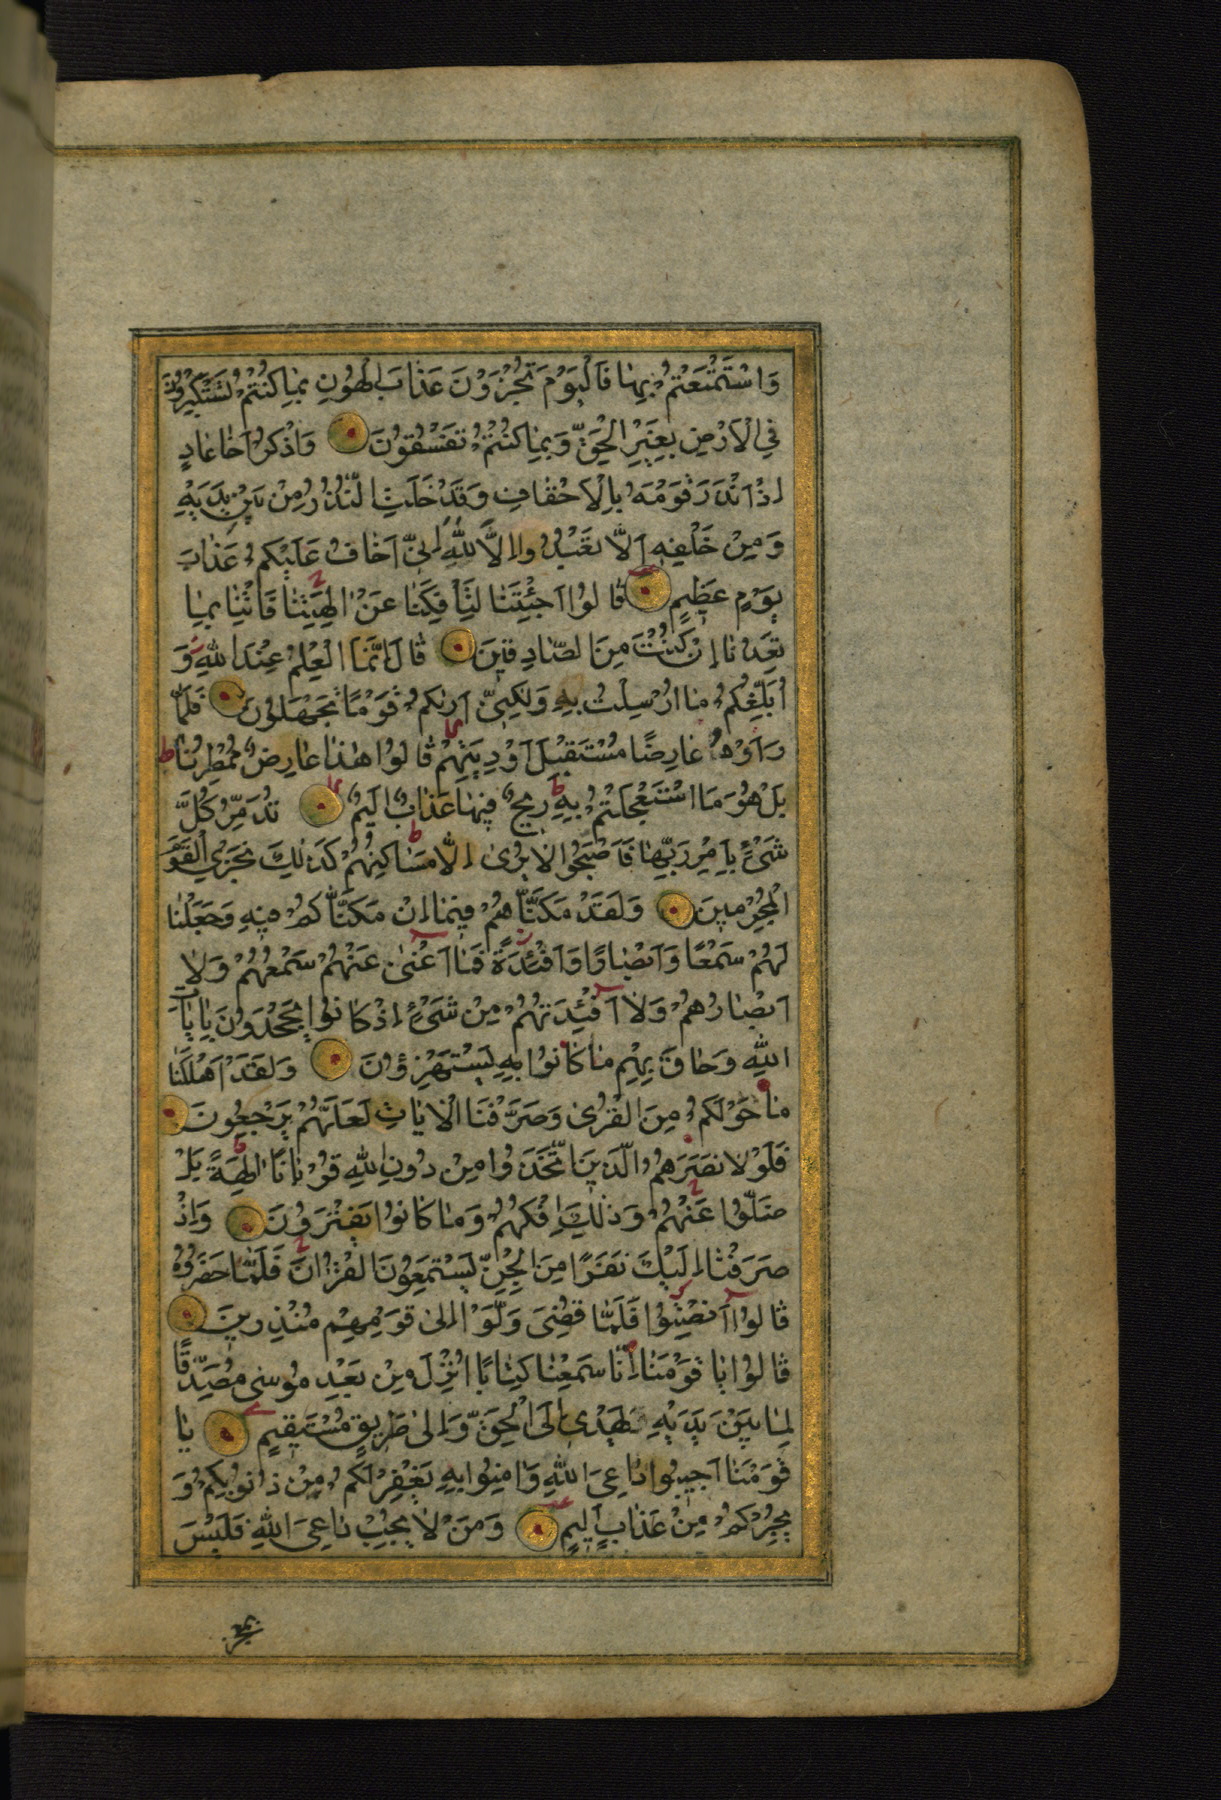 وَاسْتَمْتَعْتُمْ بِهَا فَالْيَوْمَ تُجْزَوْنَ عَذَابَ الْهُونِ بِمَا كُنْتُمْ تَسْتَكْبِرُونَ
فِي الْاَرْضِ بِغَيْرِ الْحَقِّ وَبِمَا كُنْتُمْ تَفْسُقُونَ وَاذْكُرْ اَخَا عَادٍ
اِذْ اَنْذَرَ قَوْمَهُ بِالْاَحْقَافِ وَقَدْ خَلَتِ النُّذُرُ مِنْ بَيْنِ يَدَيْهِ
وَمِنْ خَلْفِهِ اَلَّا تَعْبُدُوا اِلَّا اللّٰهَ اِنِّي اَخَافُ عَلَيْكُمْ عَذَابَ
يَوْمٍ عَظِيمٍ قَالُوا اَجِئْتَنَا لِتَأْفِكَنَا عَنْ اٰلِهَتِنَا فَأْتِنَا بِمَا
تَعِدُنَا اِنْ كُنْتَ مِنَ الصَّادِقِينَ قَالَ اِنَّمَا الْعِلْمُ عِنْدَ اللّٰهِ وَ
اُبَلِّغُكُمْ مَا اُرْسِلْتُ بِهِ وَلٰكِنِّي اَرٰيكُمْ قَوْمًا تَجْهَلُونَ فَلَمَّا
رَاَوْهُ عَارِضًا مُسْتَقْبِلَ اَوْدِيَتِهِمْ قَالُوا هٰذَا عَارِضٌ مُمْطِرُنَا
بَلْ هُوَ مَا اسْتَعْجَلْتُمْ بِهِ رِيحٌ فِيهَا عَذَابٌ اَلِيمٌ تُدَمِّرُ كُلَّ
شَىْءٍ بِاَمْرِ رَبِّهَا فَاَصْبَحُوا لَا يُرٰى اِلَّا مَسَاكِنُهُمْ كَذٰلِكَ نَجْزِي الْقَوْمَ
الْمُجْرِمِينَ وَلَقَدْ مَكَّنَّاهُمْ فِيمَا اِنْ مَكَّنَّاكُمْ فِيهِ وَجَعَلْنَا
لَهُمْ سَمْعًا وَاَبْصَارًا وَاَفْئِدَةً فَمَا اَغْنٰى عَنْهُمْ سَمْعُهُمْ وَلَا
اَبْصَارُهُمْ وَلَا اَفْئِدَتُهُمْ مِنْ شَىْءٍ اِذْ كَانُوا يَجْحَدُونَ بِاٰيَاتِ
اللّٰهِ وَحَاقَ بِهِمْ مَا كَانُوا بِهِ يَسْتَهْزِؤُنَ وَلَقَدْ اَهْلَكْنَا
مَا حَوْلَكُمْ مِنَ الْقُرٰى وَصَرَّفْنَا الْاٰيَاتِ لَعَلَّهُمْ يَرْجِعُونَ
فَلَوْلَا نَصَرَهُمُ الَّذِينَ اتَّخَذُوا مِنْ دُونِ اللّٰهِ قُرْبَانًا اٰلِهَةً بَلْ
ضَلُّوا عَنْهُمْ وَذٰلِكَ اِفْكُهُمْ وَمَا كَانُوا يَفْتَرُونَ وَاِذْ
صَرَفْنَا اِلَيْكَ نَفَرًا مِنَ الْجِنِّ يَسْتَمِعُونَ الْقُرْاٰنَ فَلَمَّا حَضَرُوهُ
قَالُوا اَنْصِتُوا فَلَمَّا قُضِىَ وَلَّوْا اِلٰى قَوْمِهِمْ مُنْذِرِينَ
قَالُوا يَا قَوْمَنَا اِنَّا سَمِعْنَا كِتَابًا اُنْزِلَ مِنْ بَعْدِ مُوسٰى مُصَدِّقًا
لِمَا بَيْنَ يَدَيْهِ يَهْدِي اِلَى الْحَقِّ وَاِلٰى طَرِيقٍ مُسْتَقِيمٍ يَا
قَوْمَنَا اَجِيبُوا دَاعِىَ اللّٰهِ وَاٰمِنُوا بِهِ يَغْفِرْ لَكُمْ مِنْ ذُنُوبِكُمْ وَ
يُجِرْكُمْ مِنْ عَذَابٍ اَلِيمٍ وَمَنْ لَا يُجِبْ دَاعِىَ اللّٰهِ فَلَيْسَ